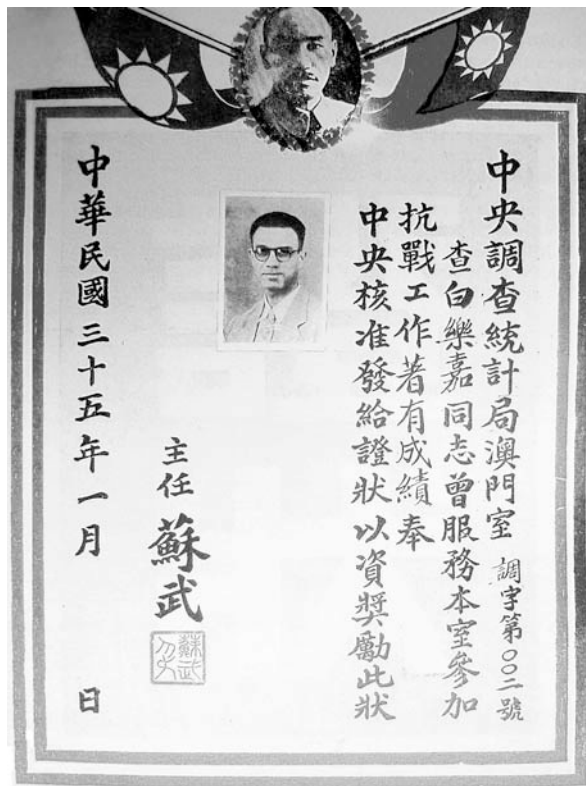 中央調查統計局澳門室 調字第〇〇二號
查白樂嘉同志曾服務本室參加
抗戰工作著有成績奉
中央核准發給證狀以資獎勵此狀
主任 蘇武
蘇武
中華民國三十五年一月 日